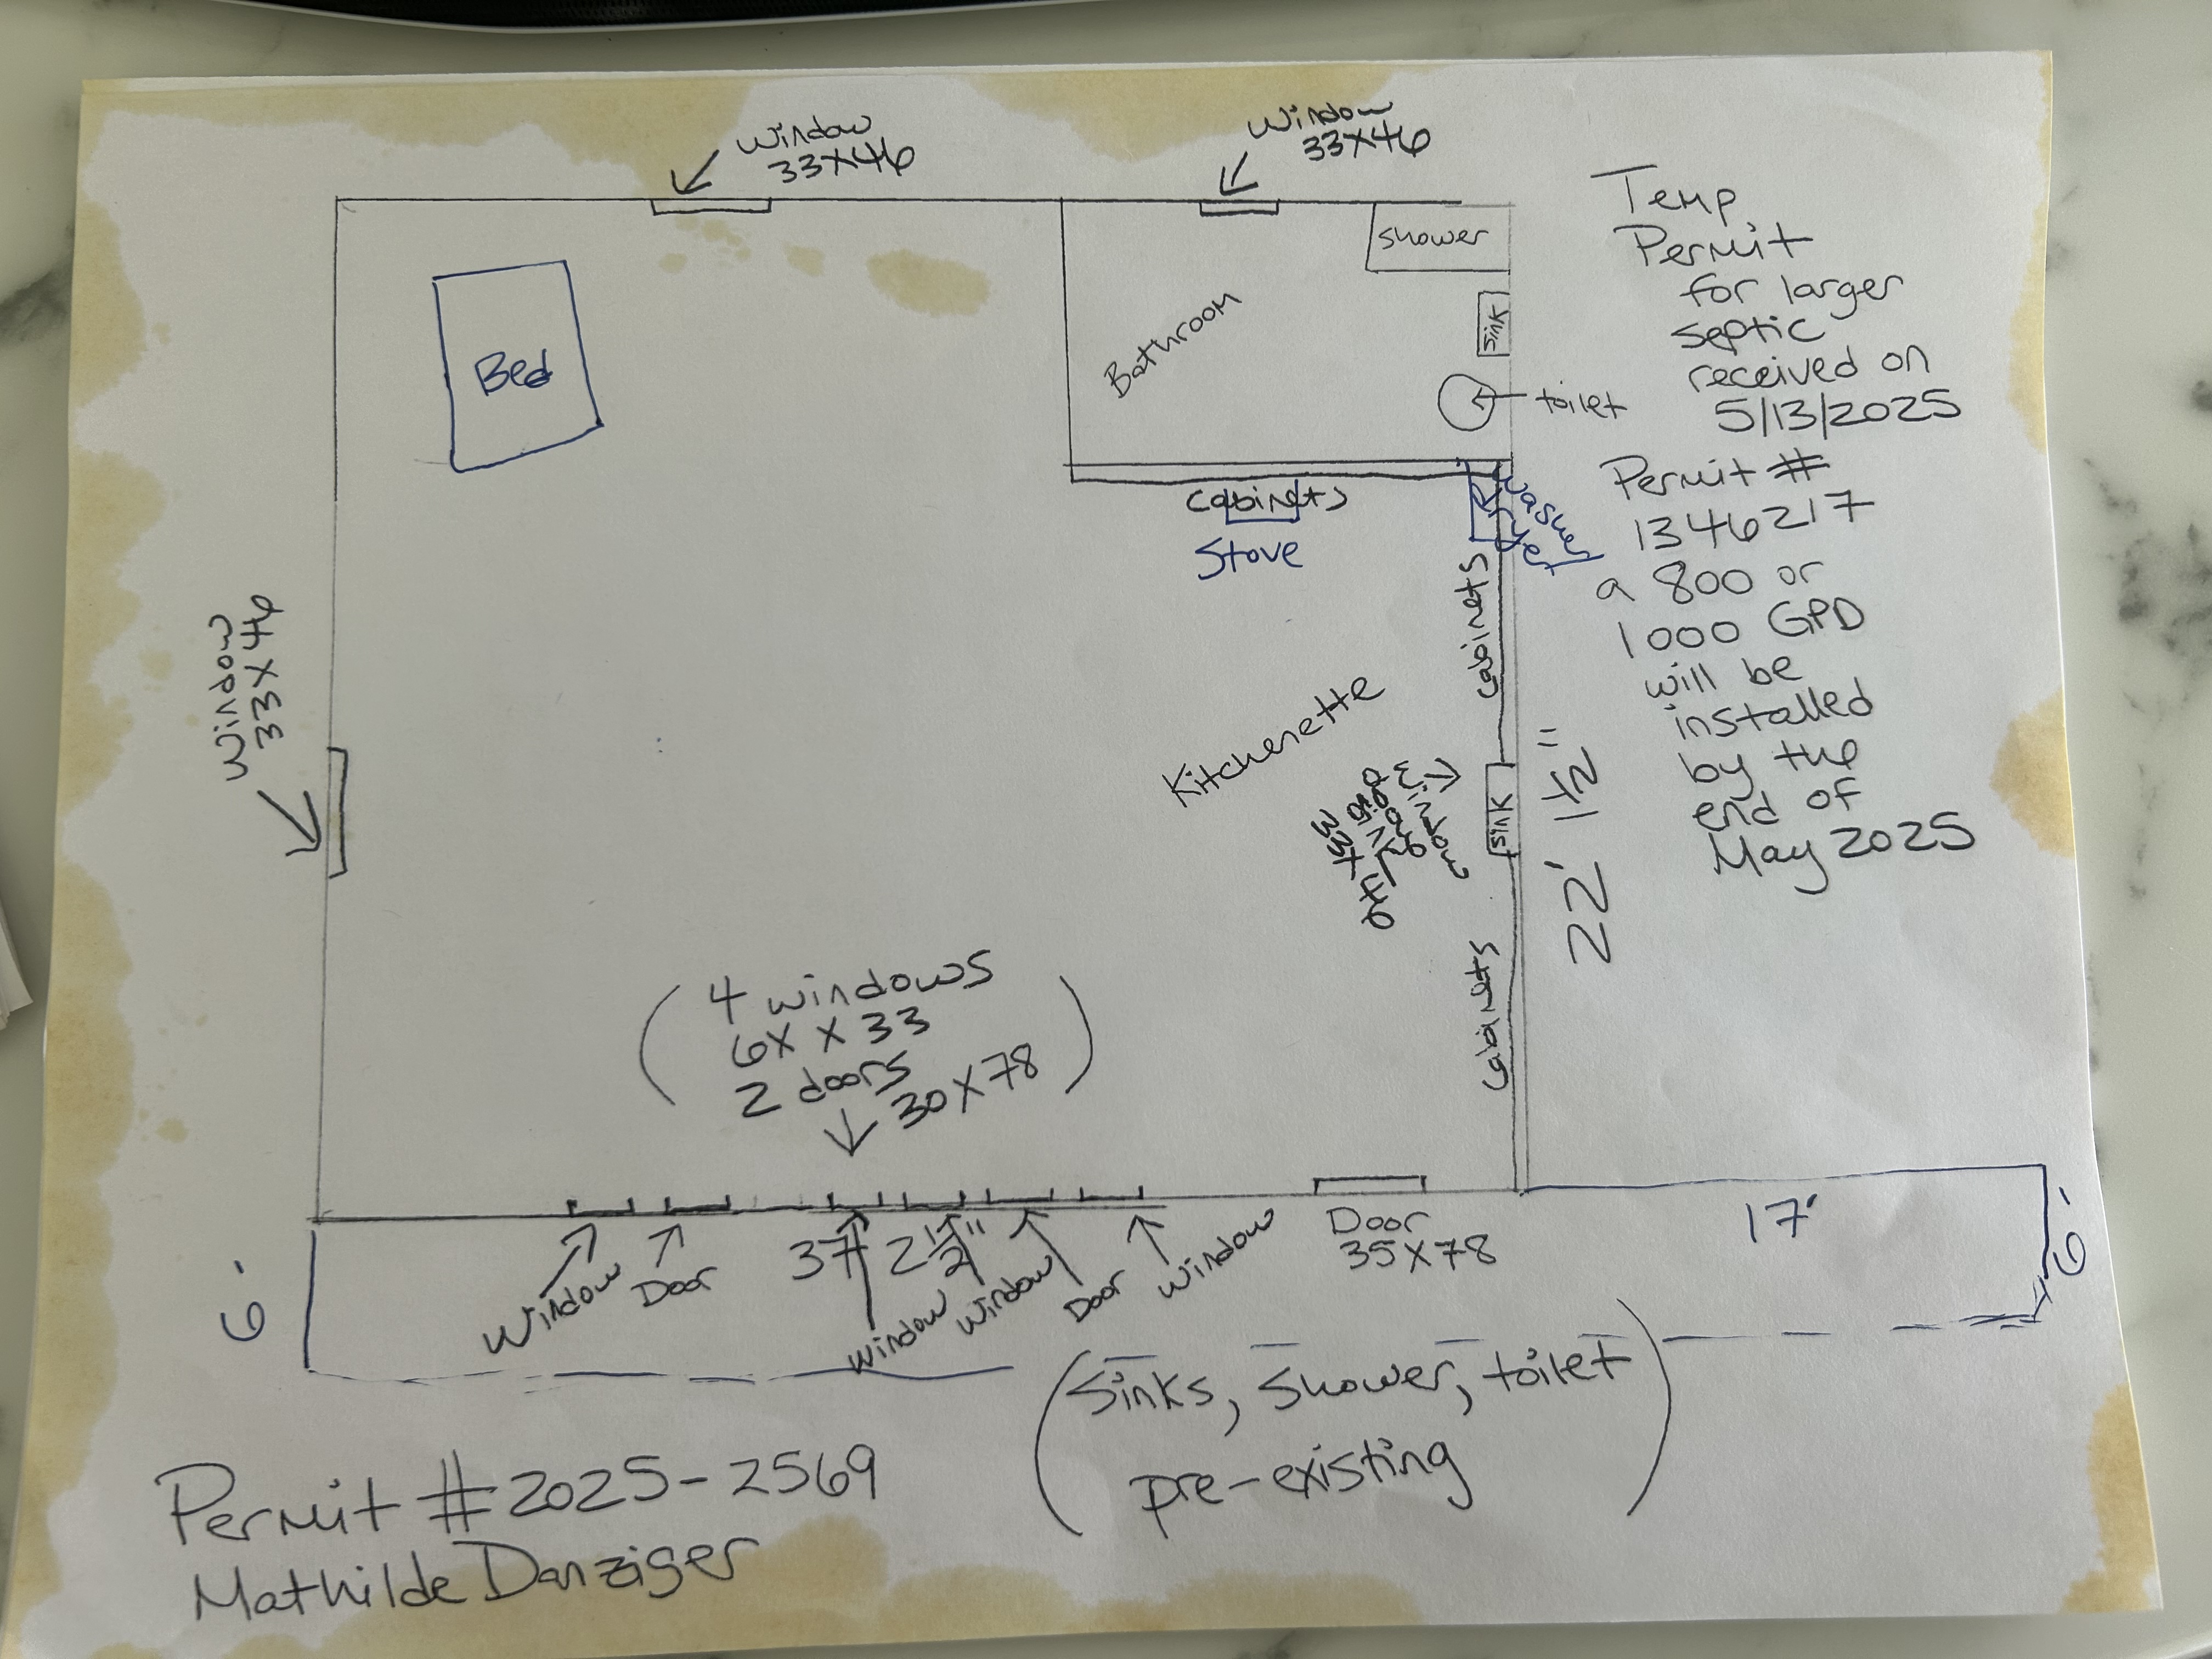 Window
33X46
Window
33X46
Shower
Sink
toilet
Bathroom
Bed
Cabinets
Stove
Washer
Dryer
Cabinets
Window
33X46
Kitchenette
Window
above
sink
33X46
Sink
22' 1½"
Cabinets
Temp
Permit
for larger
septic
received on
5/13/2025
Permit #
1346217
a 800 or
1000 GPD
will be
installed
by the
end of
May 2025
(4 windows
6X X 33
2 doors
30X78)
Window
Door
37' 2½"
Window
Window
Door
Window
Door
35X78
17'
6'
6'
(Sinks, Shower, toilet
pre-existing)
Permit #2025-2569
Mathilde Danziger